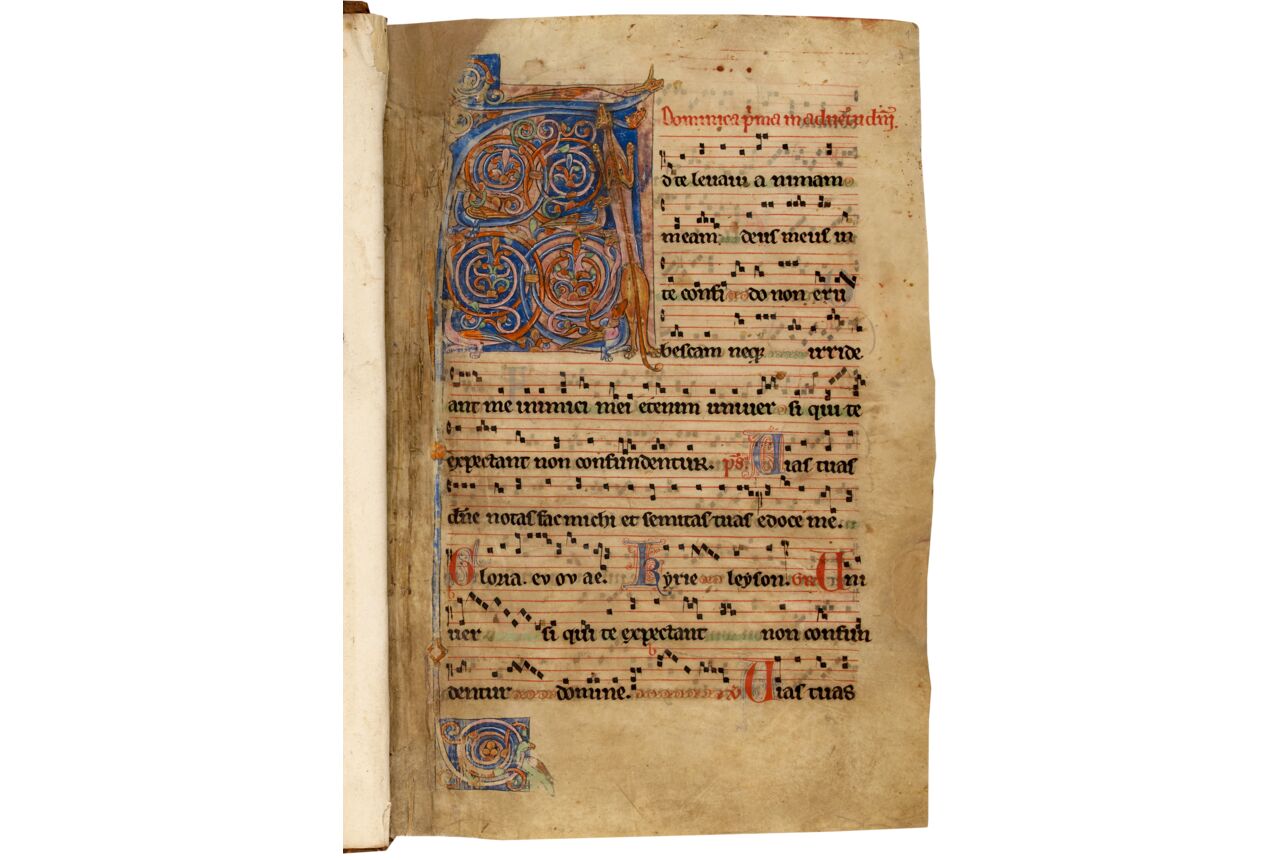 Dominica p̄ma in aduētu dñi.
A
d te leuaui a nimam
meam deus meus in
te confi do non eru
bescam neq irride
ant me inimici mei etenim uniuer si qui te
expectant non confundentur. ps. Uias tuas
dn̄e notas fac michi et semitas tuas edoce me.
Gloria. eu ou ae. Kyrie leyson. GR Uni
uer si qui te expectant non confun
dentur domine. V Uias tuas